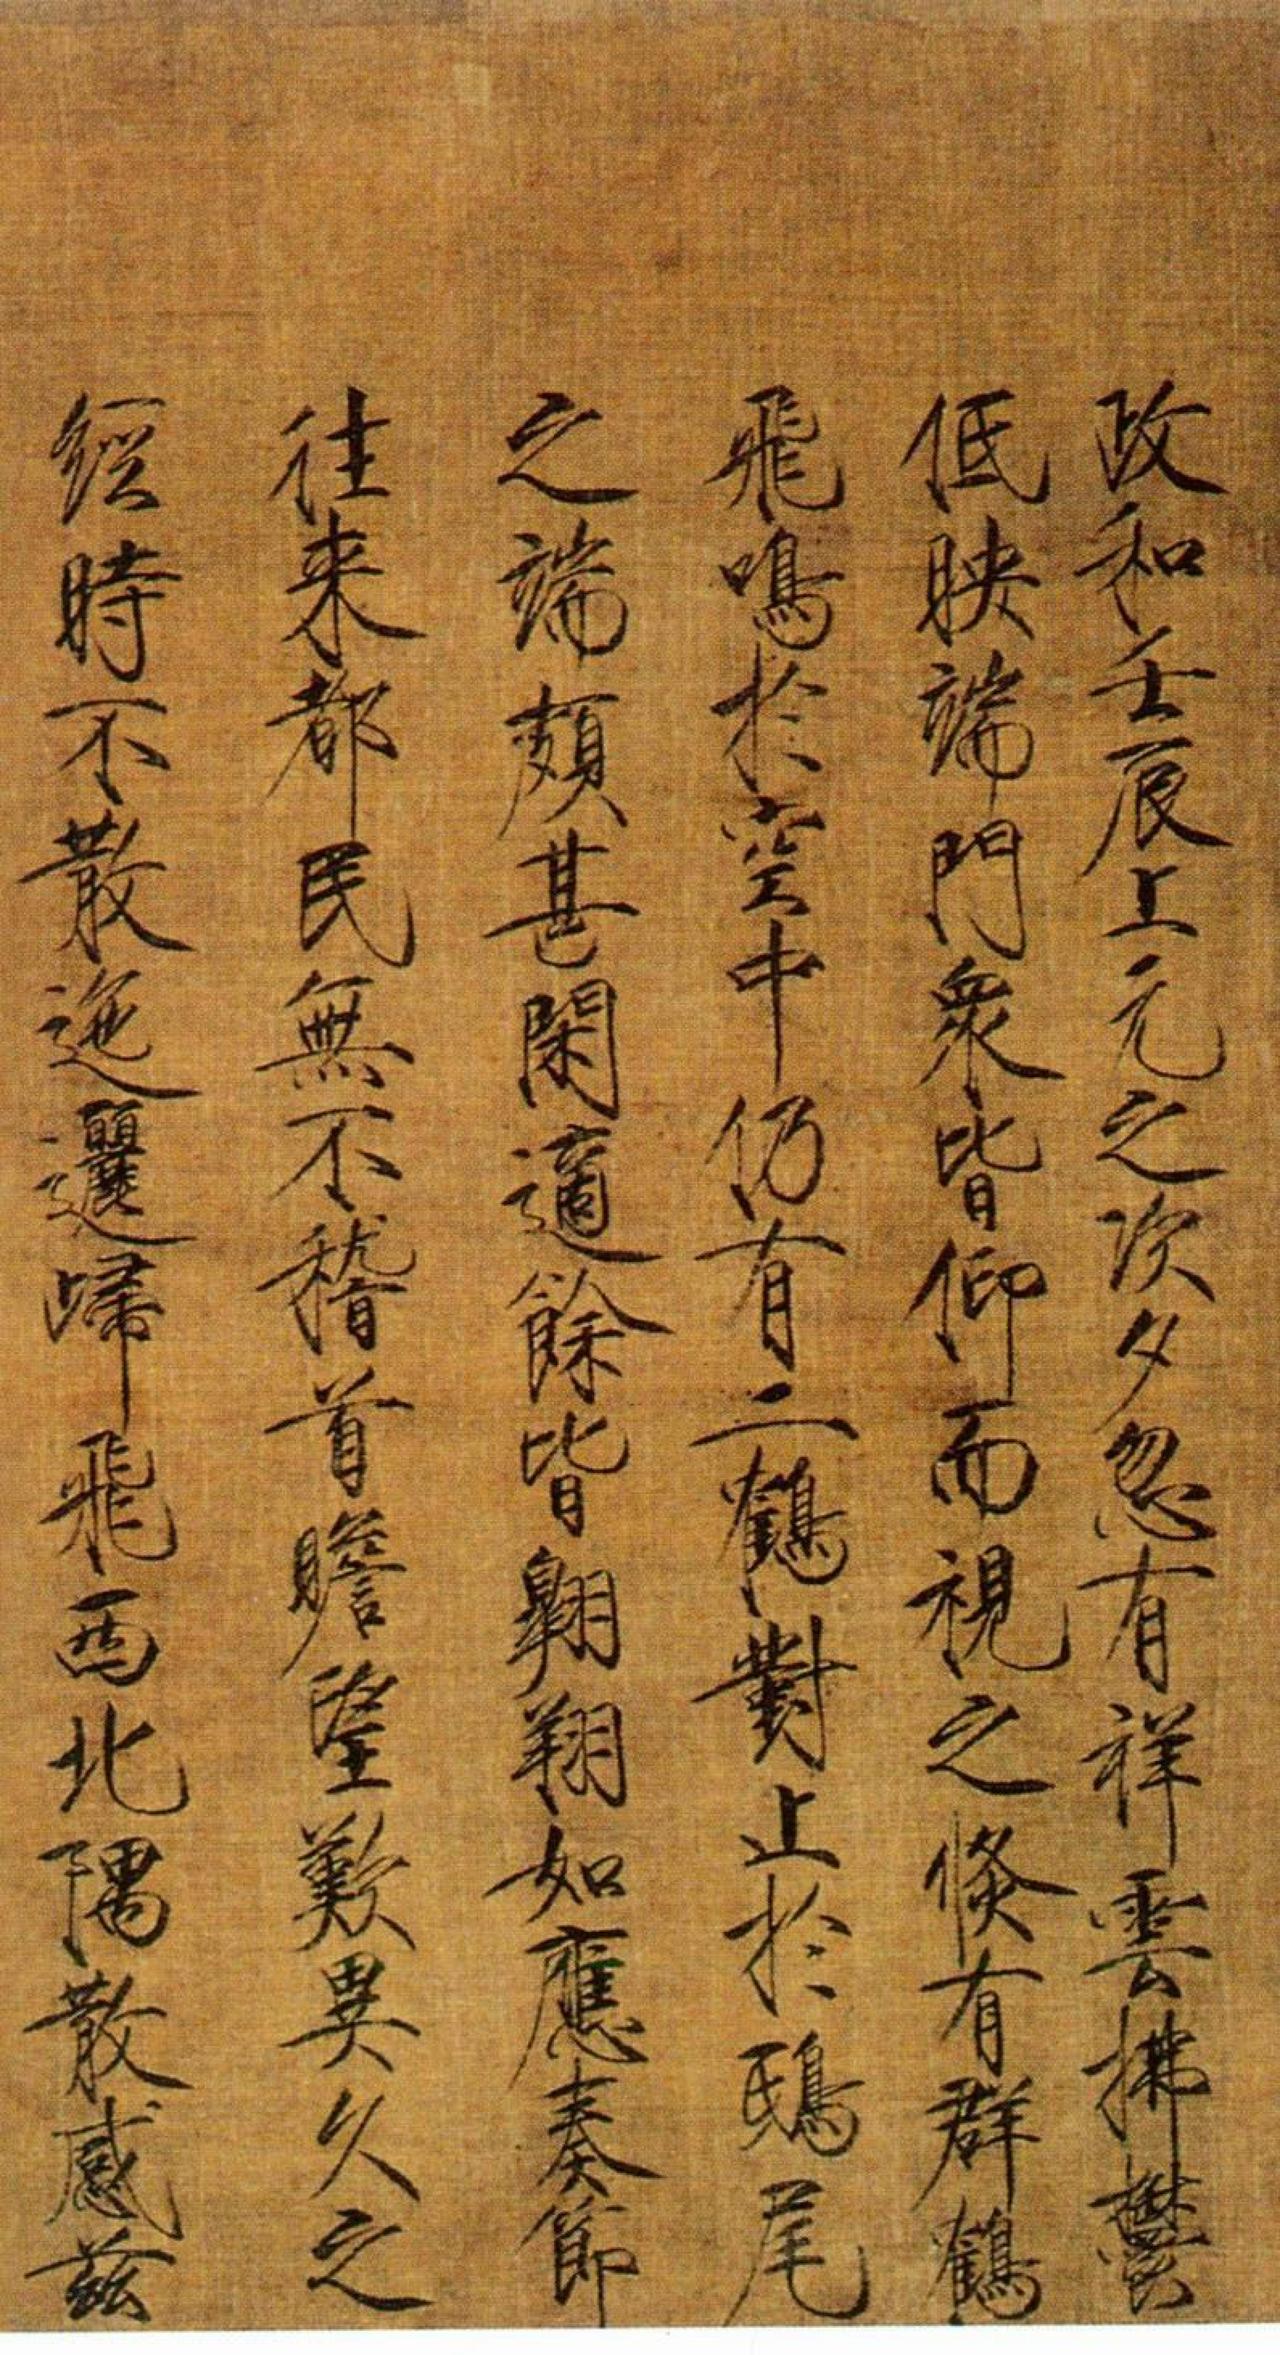 政和壬辰上元之次夕忽有祥雲拂鬱
低映端門衆皆仰而視之倐有群鶴
飛鳴於空中仍有二鶴對止於鴟尾
之端頗甚閑適餘皆翱翔如應奏節
往来都民無不稽首瞻望歎異久之
經時不散迤邐歸飛西北隅散感茲